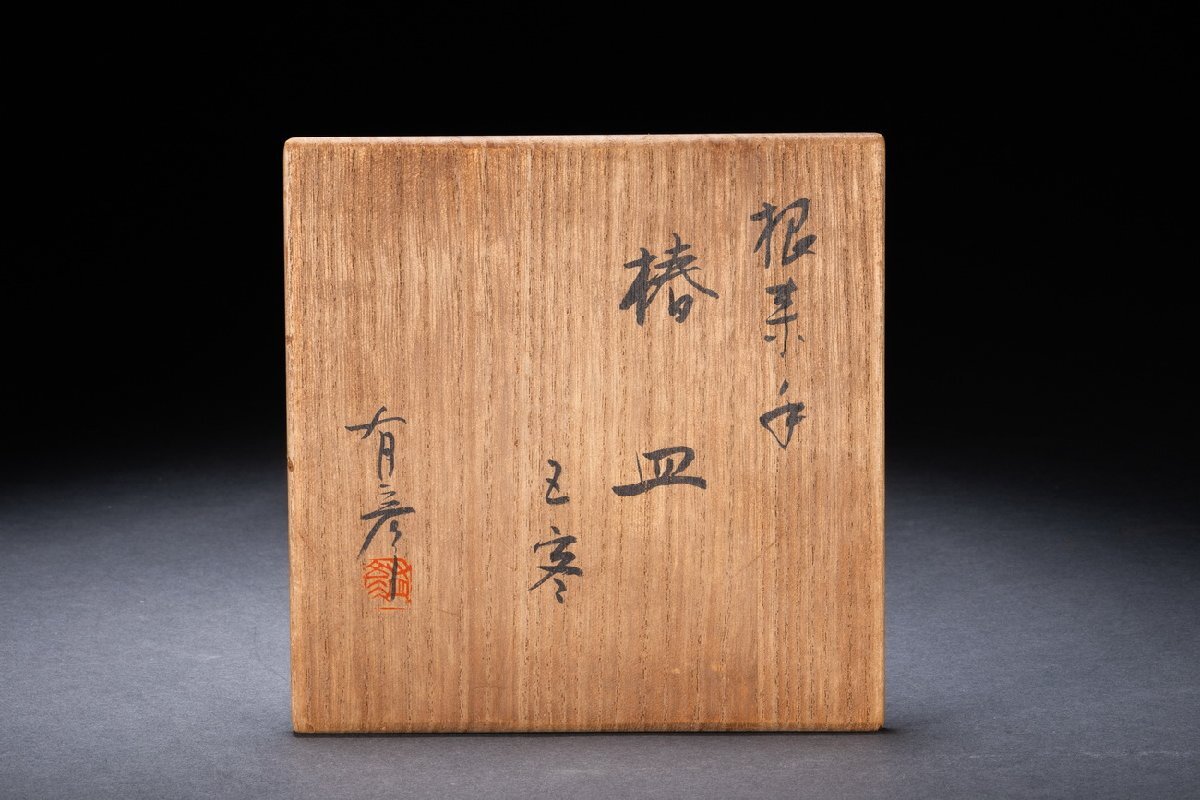 根来手
椿皿
五客
有彦